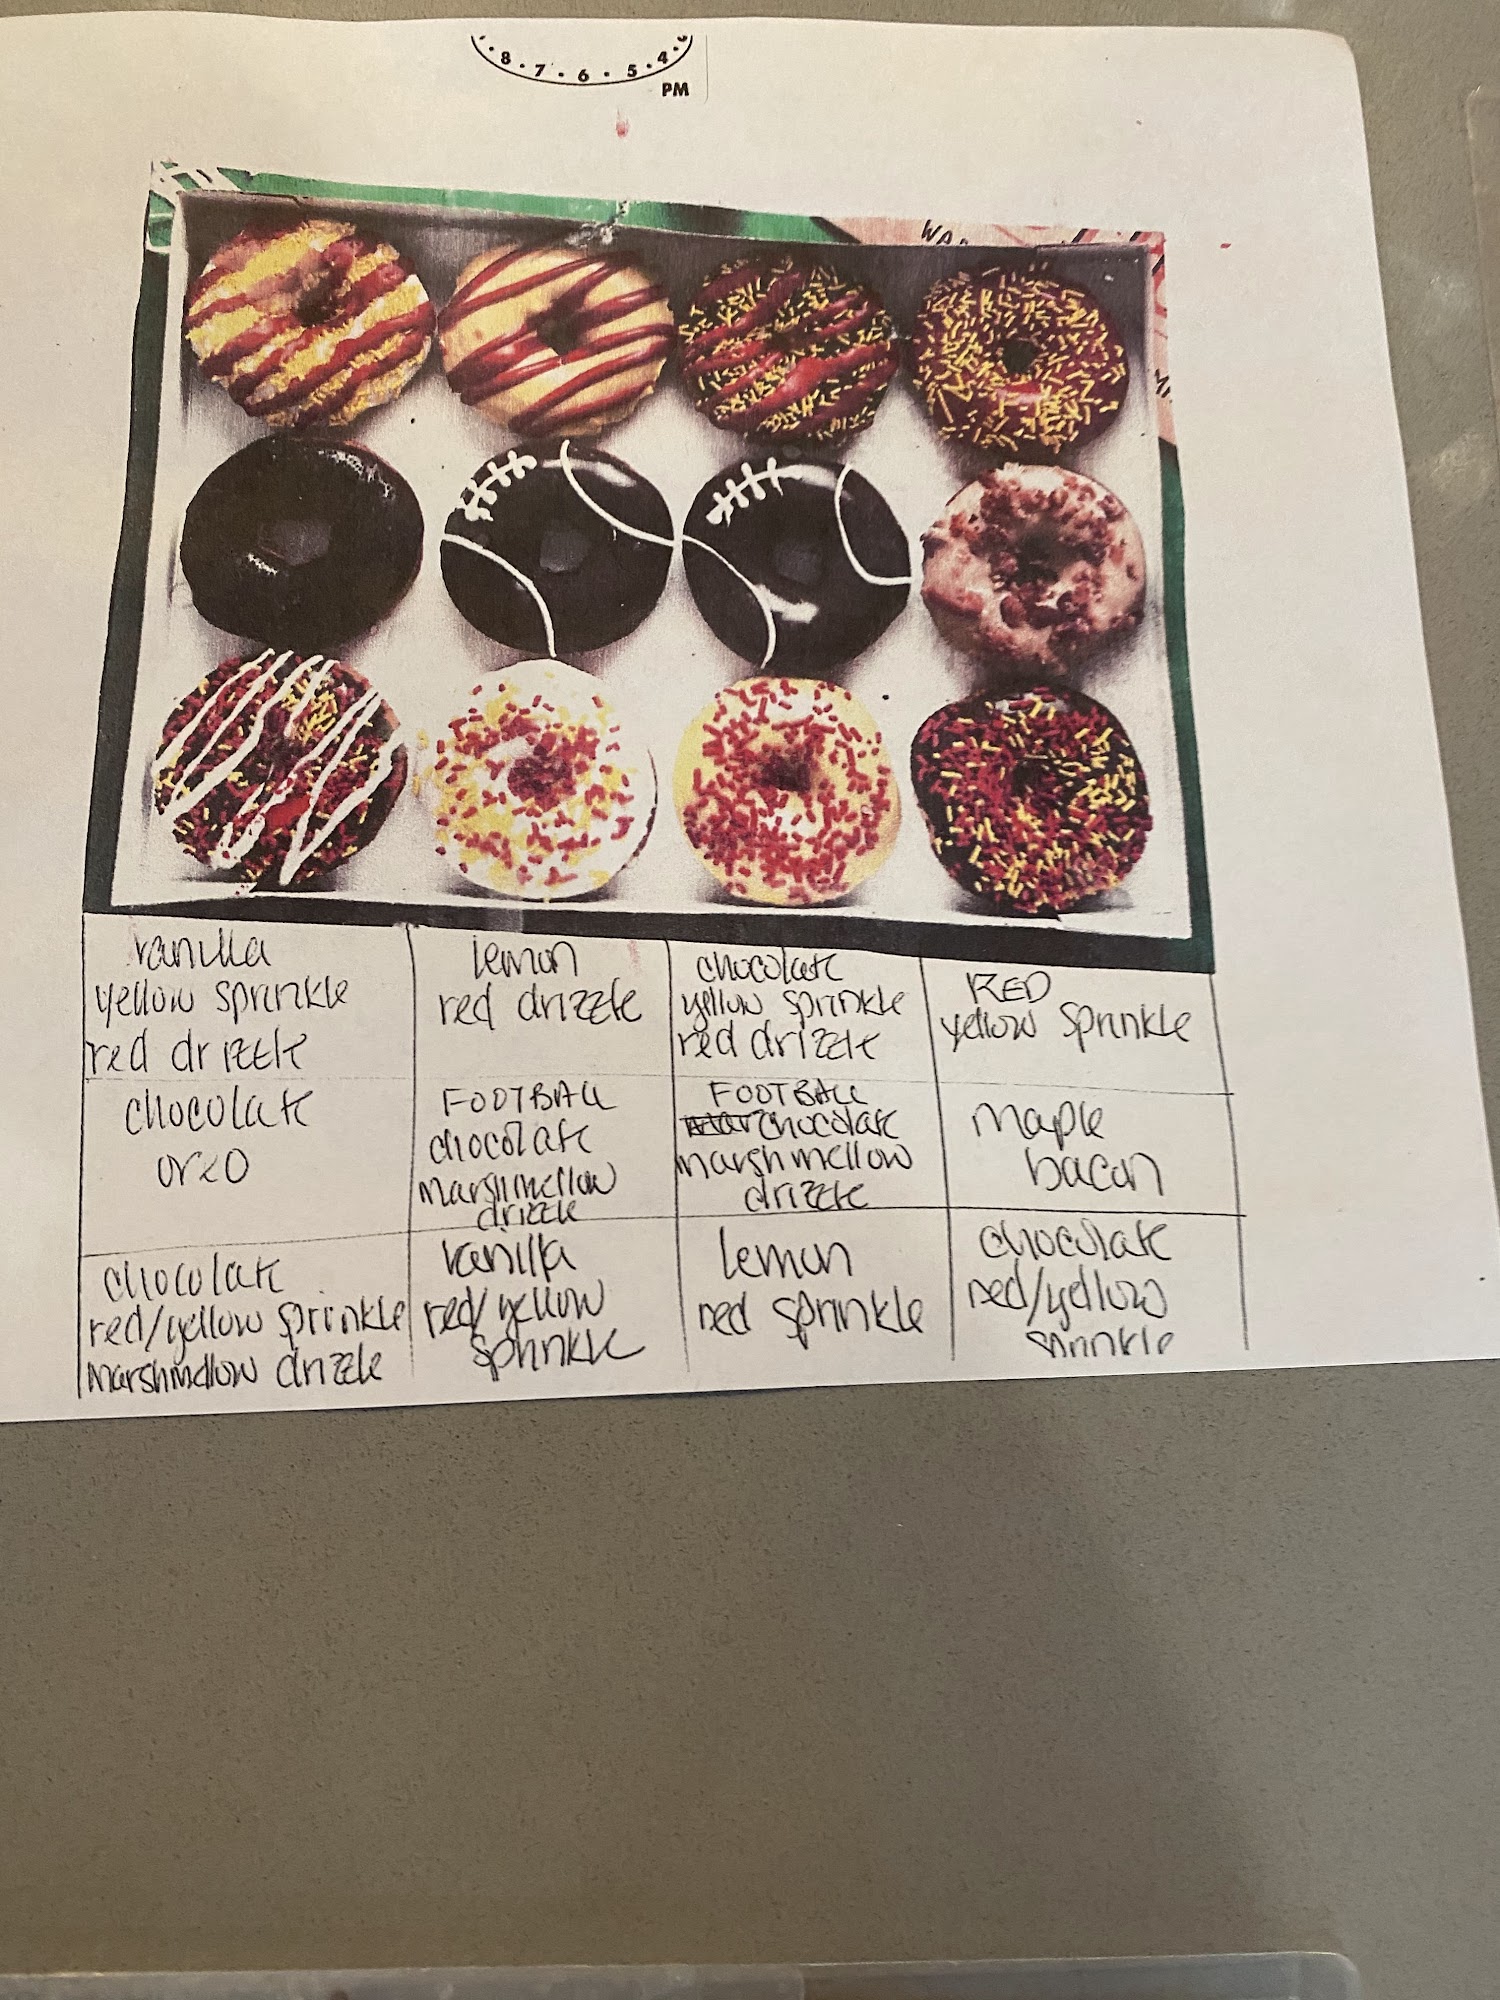 8 · 7 · 6 · 5 · 4
PM
vanilla
yellow sprinkle
red drizzle
lemon
red drizzle
chocolate
yellow sprinkle
red drizzle
RED
yellow sprinkle
chocolate
oreo
FOOTBALL
chocolate
marshmellow
drizzle
FOOTBALL
chocolate
marshmellow
drizzle
maple
bacon
chocolate
red/yellow sprinkle
marshmellow drizzle
vanilla
red/yellow
sprinkle
lemon
red sprinkle
chocolate
red/yellow
sprinkle